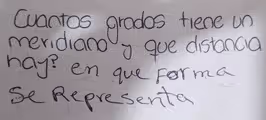 Cuantos grados tiene un
meridiano y que distancia
hay? en que forma
Se Representa